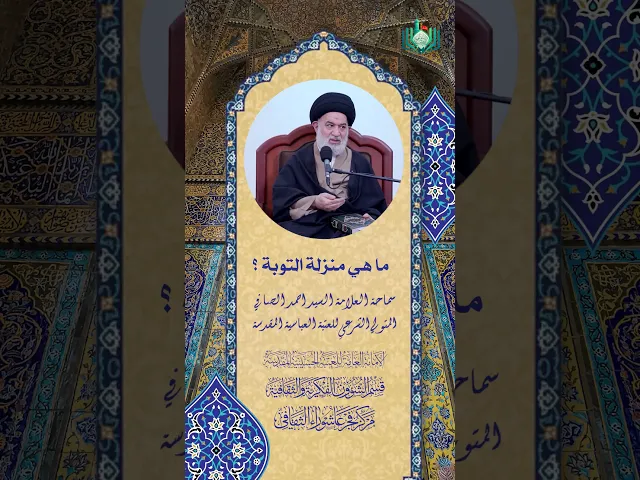 ما هي منزلة التوبة ؟
سماحة العلامة السيد احمد الصافي
المتولي الشرعي للعتبة العباسية المقدسة
الامانة العامة للعتبة الحسينية المقدسة
قسم الشؤون الفكرية والثقافية
مركز فجر عاشوراء الثقافي